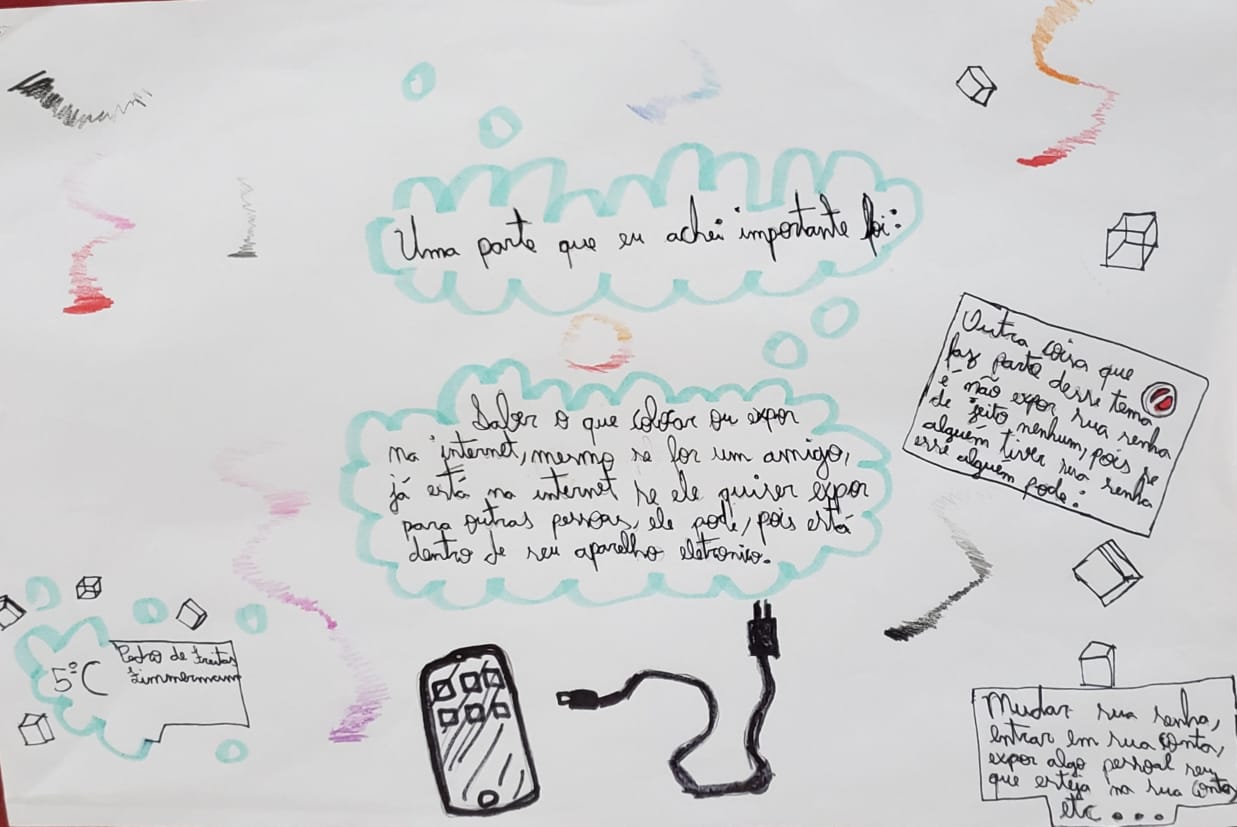 Uma parte que eu achei importante foi:
Saber o que colocar ou expor
na internet, mesmo se for um amigo,
já está na internet se ele quiser expor
para outras pessoas, ele pode, pois está
dentro de seu aparelho eletronico.
Outra coisa que
faz parte desse tema
é não expor sua senha
de jeito nenhum, pois se
alguém tiver sua senha
esse alguém pode:
Mudar sua senha,
entrar em sua conta,
expor algo pessoal seu
que esteja na sua conta
etc...
5ºC
Pedro de Freitas
Zimmermann